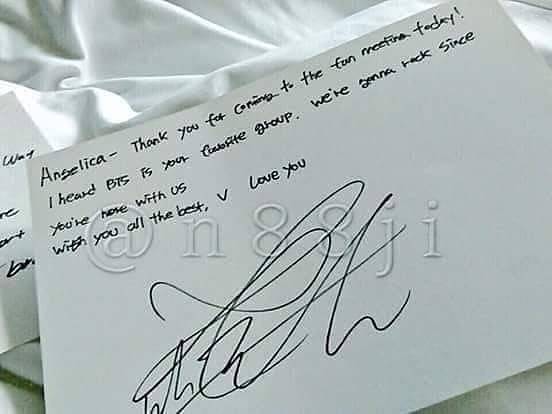 Angelica- Thank you for coming to the fan meeting today!
I heard BTS is your favorite group. We're gonna rock since
you're here with us
Wish you all the best, V Love you
@n88ji
way